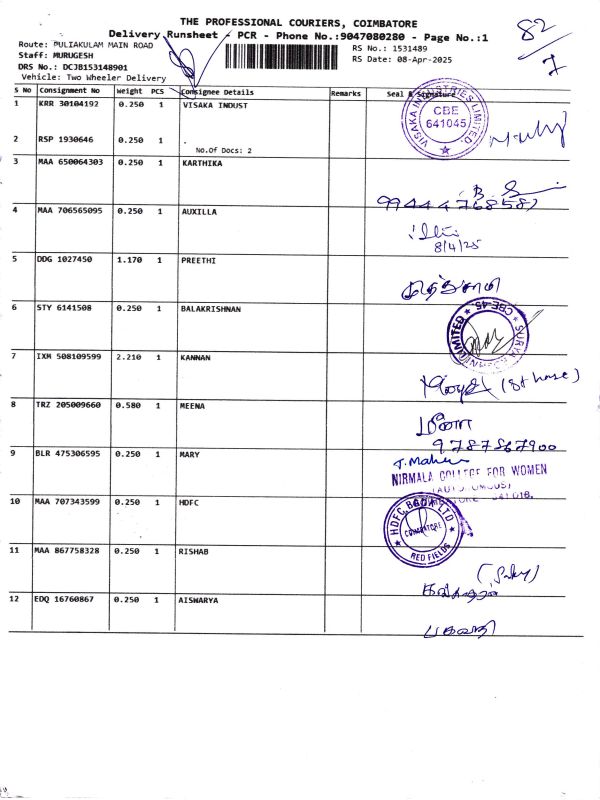 THE PROFESSIONAL COURIERS, COIMBATORE
Delivery Runsheet - PCR - Phone No.:9047080280 - Page No.:1
82
7
Route: PULIAKULAM MAIN ROAD
RS No.: 1531489
Staff: MURUGESH
RS Date: 08-Apr-2025
DRS No.: DCJB153148901
Vehicle: Two Wheeler Delivery
S No Consignment No Weight PCS Consignee Details Remarks Seal & Signature
1 KRR 30104192 0.250 1 VISAKA INDUST
VISAKA INDUSTRIES LIMITED.
CBE
641045
2 RSP 1930646 0.250 1
No.Of Docs: 2
3 MAA 650064303 0.250 1 KARTHIKA
9944476858
4 MAA 706565095 0.250 1 AUXILLA
8/4/25
5 DDG 1027450 1.170 1 PREETHI
6 STY 6141508 0.250 1 BALAKRISHNAN
LIMITED * CBE-45 * SURYA
7 IXM 508109599 2.210 1 KANNAN
8 TRZ 205009660 0.580 1 MEENA
மீனா
9787567900
9 BLR 475306595 0.250 1 MARY
NIRMALA COLLEGE FOR WOMEN
10 MAA 707343599 0.250 1 HDFC
HDFC BANK LTD
COIMBATORE
RED FIELDS
11 MAA 867758328 0.250 1 RISHAB
12 EDQ 16760867 0.250 1 AISWARYA